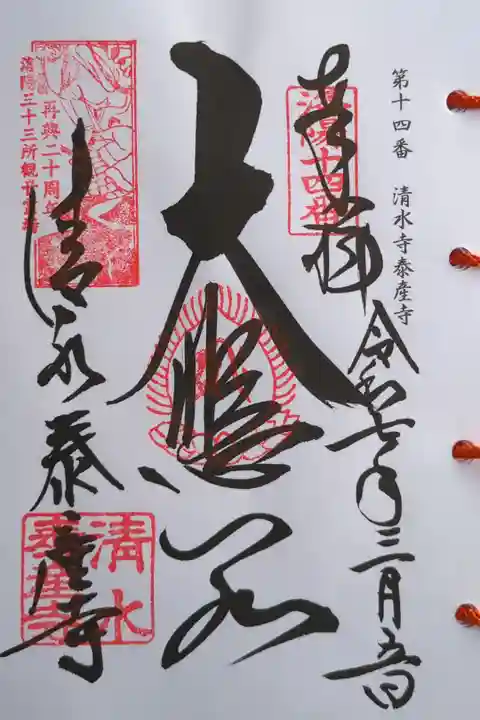 第十四番 清水寺泰産寺
奉拝 令和七年三月五日
洛陽十四番
大悲閣
再興二十周年
洛陽三十三所観音霊場
清水泰産寺
清水
泰産寺